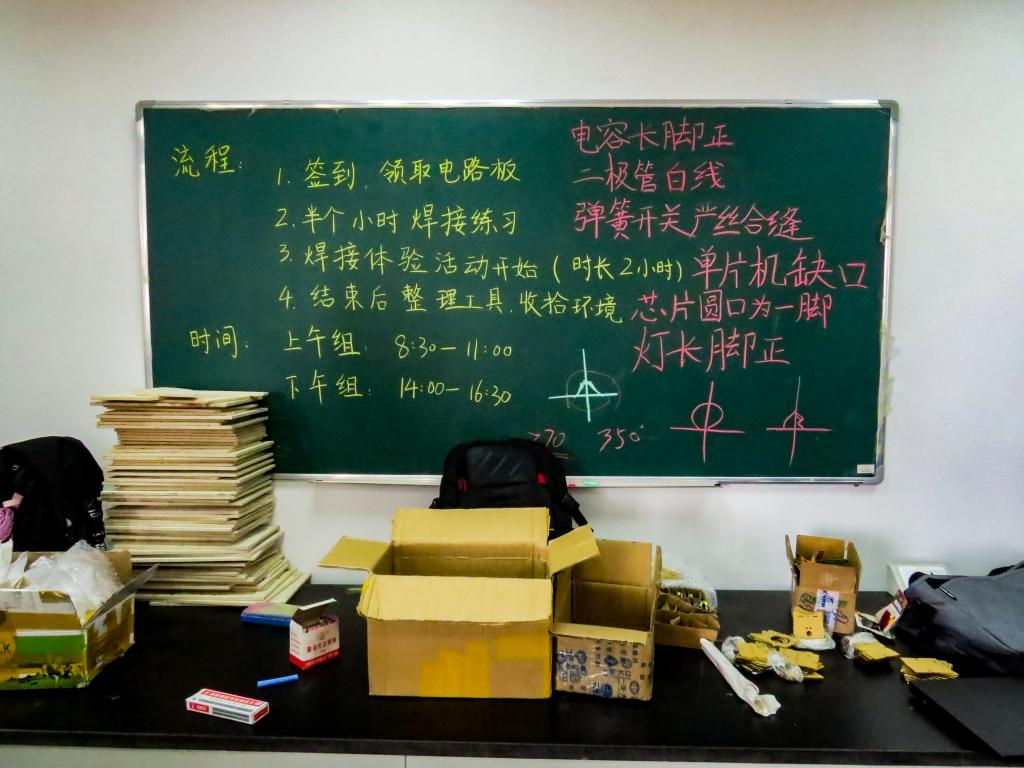 流程：
1. 签到，领取电路板
2. 半个小时 焊接练习
3. 焊接体验活动开始（时长2小时）
4. 结束后 整理工具，收拾环境
时间：
上午组： 8:30—11:00
下午组： 14:00—16:30
电容长脚正
二极管白线
弹簧开关严丝合缝
单片机缺口
芯片圆口为一脚
灯长脚正
270
350°